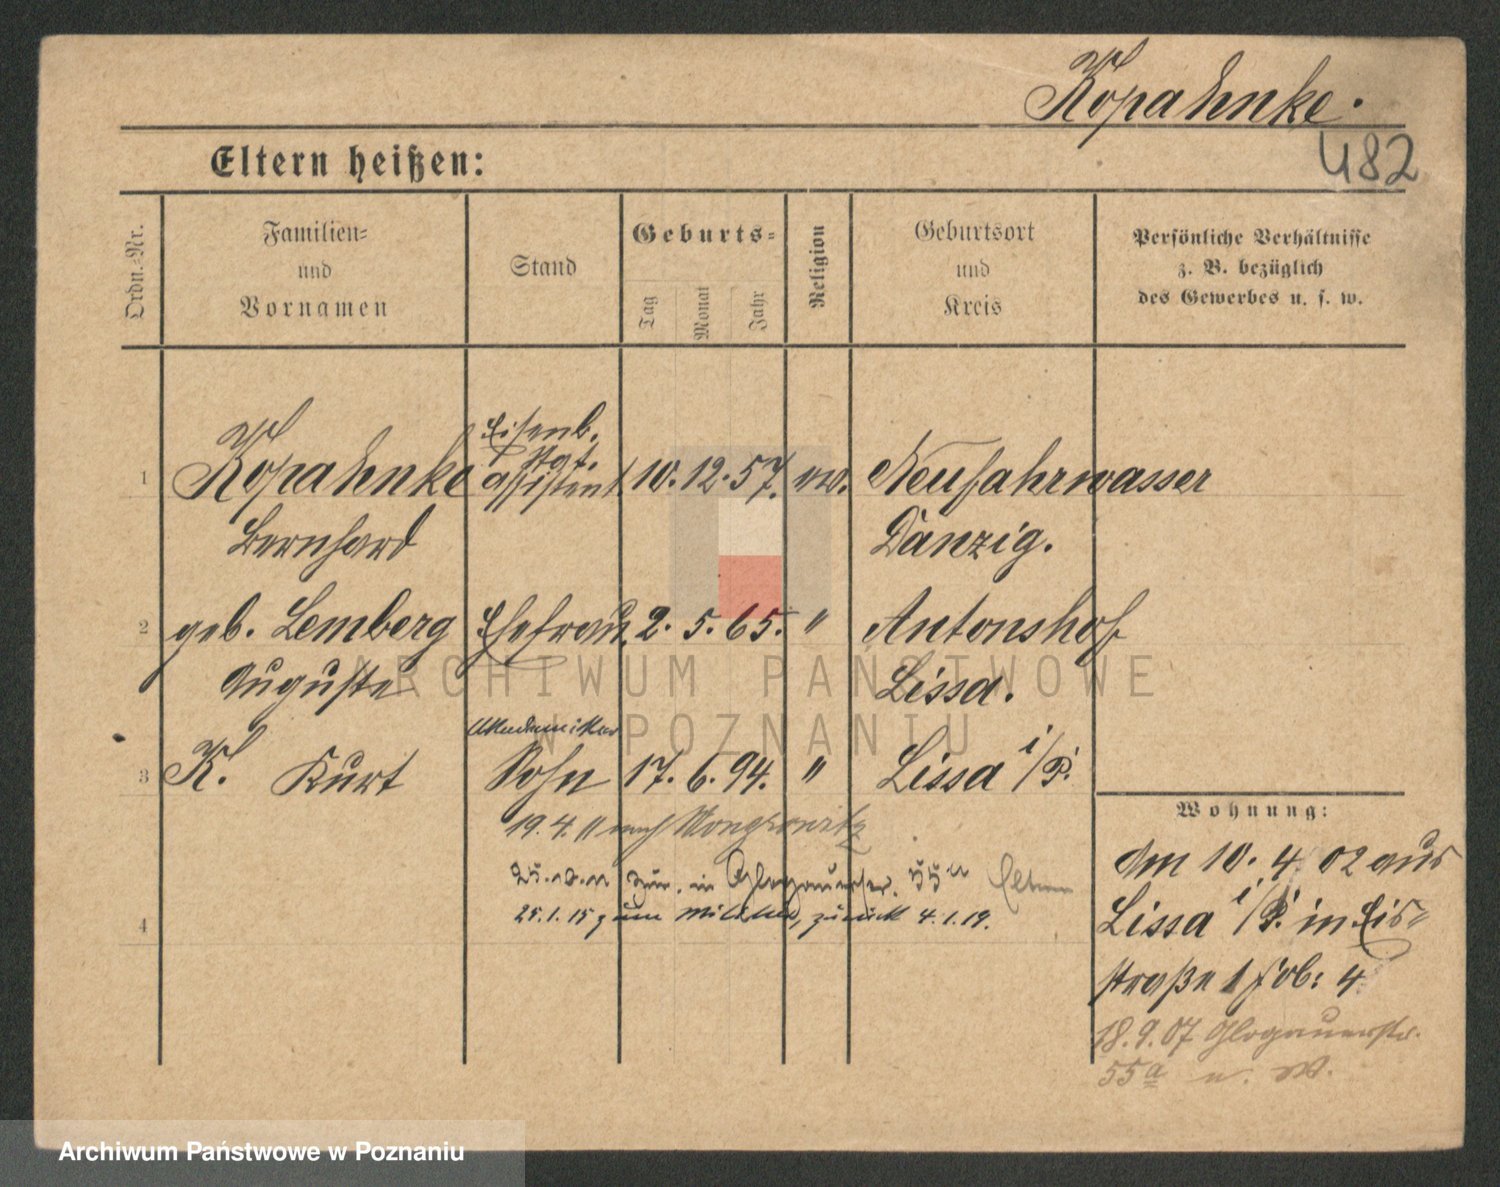 Kopahnke.
482
Eltern heißen:
Ordn.-Nr.
Familien-
und
Vornamen
Stand
Geburts-
Tag
Monat
Jahr
Religion
Geburtsort
und
Kreis
Persönliche Verhältnisse
z. B. bezüglich
des Gewerbes u. s. w.
Eisenb.
Stat.
1 Kopahnke assistent 10. 12. 57. ev. Neufahrwasser
Bernhard Danzig.
2 geb. Lemberg Ehefrau 2. 5. 65. " Antonshof
Auguste Lissa.
Akademiker
3 K. Kurt Sohn 17. 6. 94. " Lissa i/P.
19. 4. 11 nach Wongrowitz
zur. in Glogauerstr. 55a Eltern
25.1.15 zum Militär, zurück 4.1.19.
4
Wohnung:
Am 10. 4. 02 aus
Lissa i/P. in Eis-
straße 1 Job: 4
18.9.07 Glogauerstr.
55a u. W.
ARCHIWUM PAŃSTWOWE
W POZNANIU
Archiwum Państwowe w Poznaniu